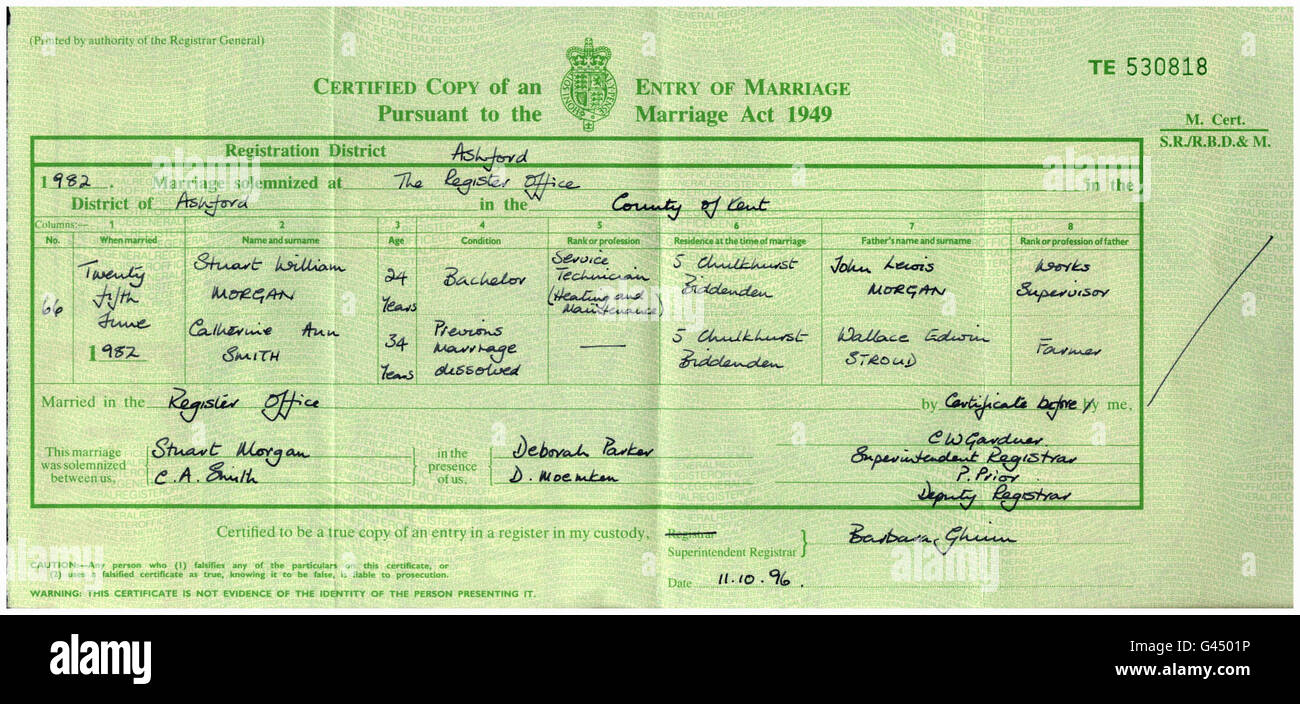 (Printed by authority of the Registrar General)
TE 530818
CERTIFIED COPY of an ENTRY OF MARRIAGE
Pursuant to the Marriage Act 1949
M. Cert.
S.R./R.B.D.& M.
Registration District Ashford
1982. Marriage solemnized at The Register Office in the
District of Ashford in the County of Kent
Columns:— 1 2 3 4 5 6 7 8
No. When married Name and surname Age Condition Rank or profession Residence at the time of marriage Father's name and surname Rank or profession of father
66
Twenty
fifth
June
1982
Stuart William
MORGAN
24
Years
Bachelor
Service
Technician
(Heating and
Maintenance)
5 Chulkhurst
Biddenden
John Lewis
MORGAN
Works
Supervisor
Catherine Ann
SMITH
34
Years
Previous
marriage
dissolved
5 Chulkhurst
Biddenden
Wallace Edwin
STROUD
Farmer
Married in the Register Office by Certificate before by me,
This marriage
was solemnized
between us,
Stuart Morgan
C.A. Smith
in the
presence
of us,
Deborah Parker
D. Moemken
C W Gardner
Superintendent Registrar
P. Prior
Deputy Registrar
Certified to be a true copy of an entry in a register in my custody,
Registrar
Superintendent Registrar
Barbara Ghinn
Date 11.10.96.
CAUTION:—Any person who (1) falsifies any of the particulars on this certificate, or
(2) uses a falsified certificate as true, knowing it to be false, is liable to prosecution.
WARNING: THIS CERTIFICATE IS NOT EVIDENCE OF THE IDENTITY OF THE PERSON PRESENTING IT.
alamy
alamy
Image ID: G4501P
www.alamy.com